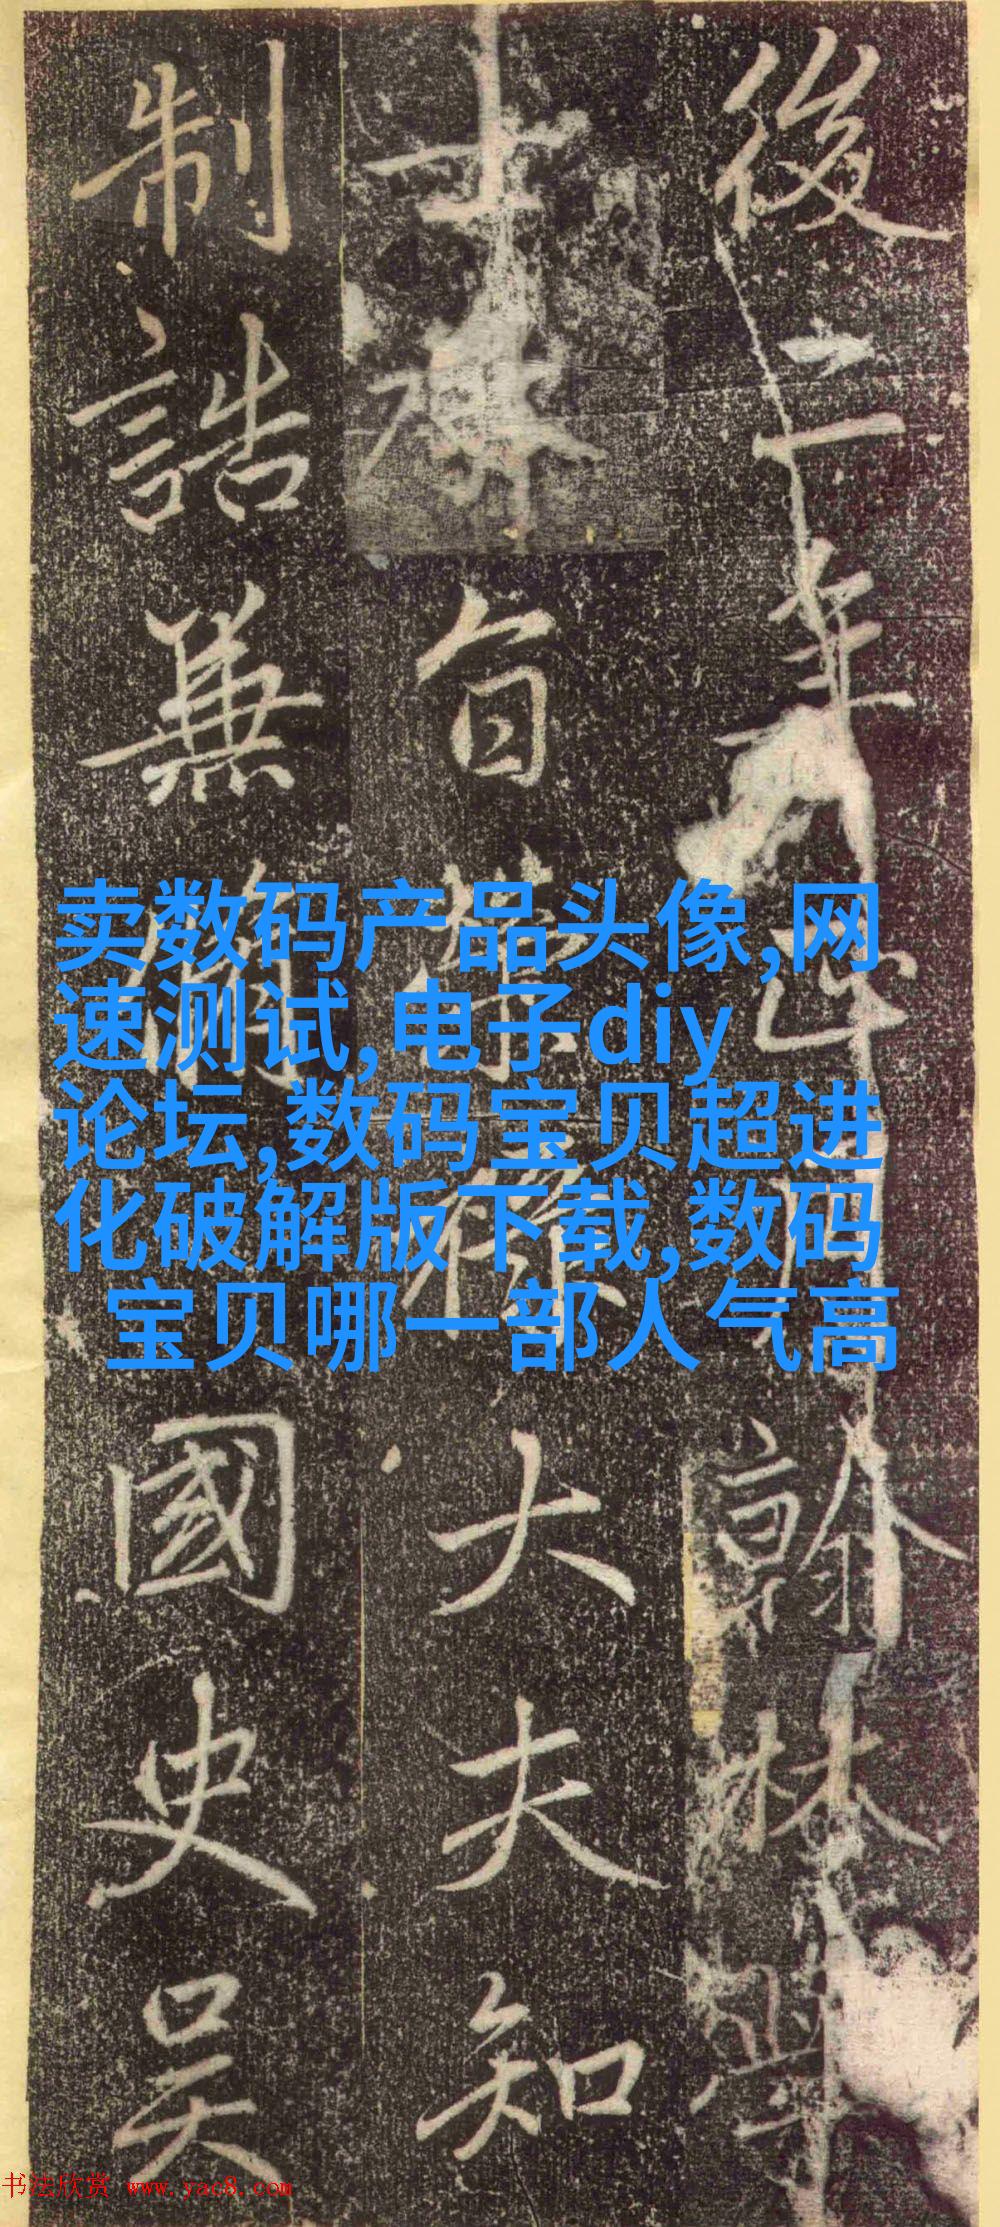 後二年正月翰林學
士承旨榮祿大夫知
制誥兼脩國史吴
卖数码产品头像,网
速测试,电子diy
论坛,数码宝贝超进
化破解版下载,数码
宝贝哪一部人气高
书法欣赏 www.yac8.com